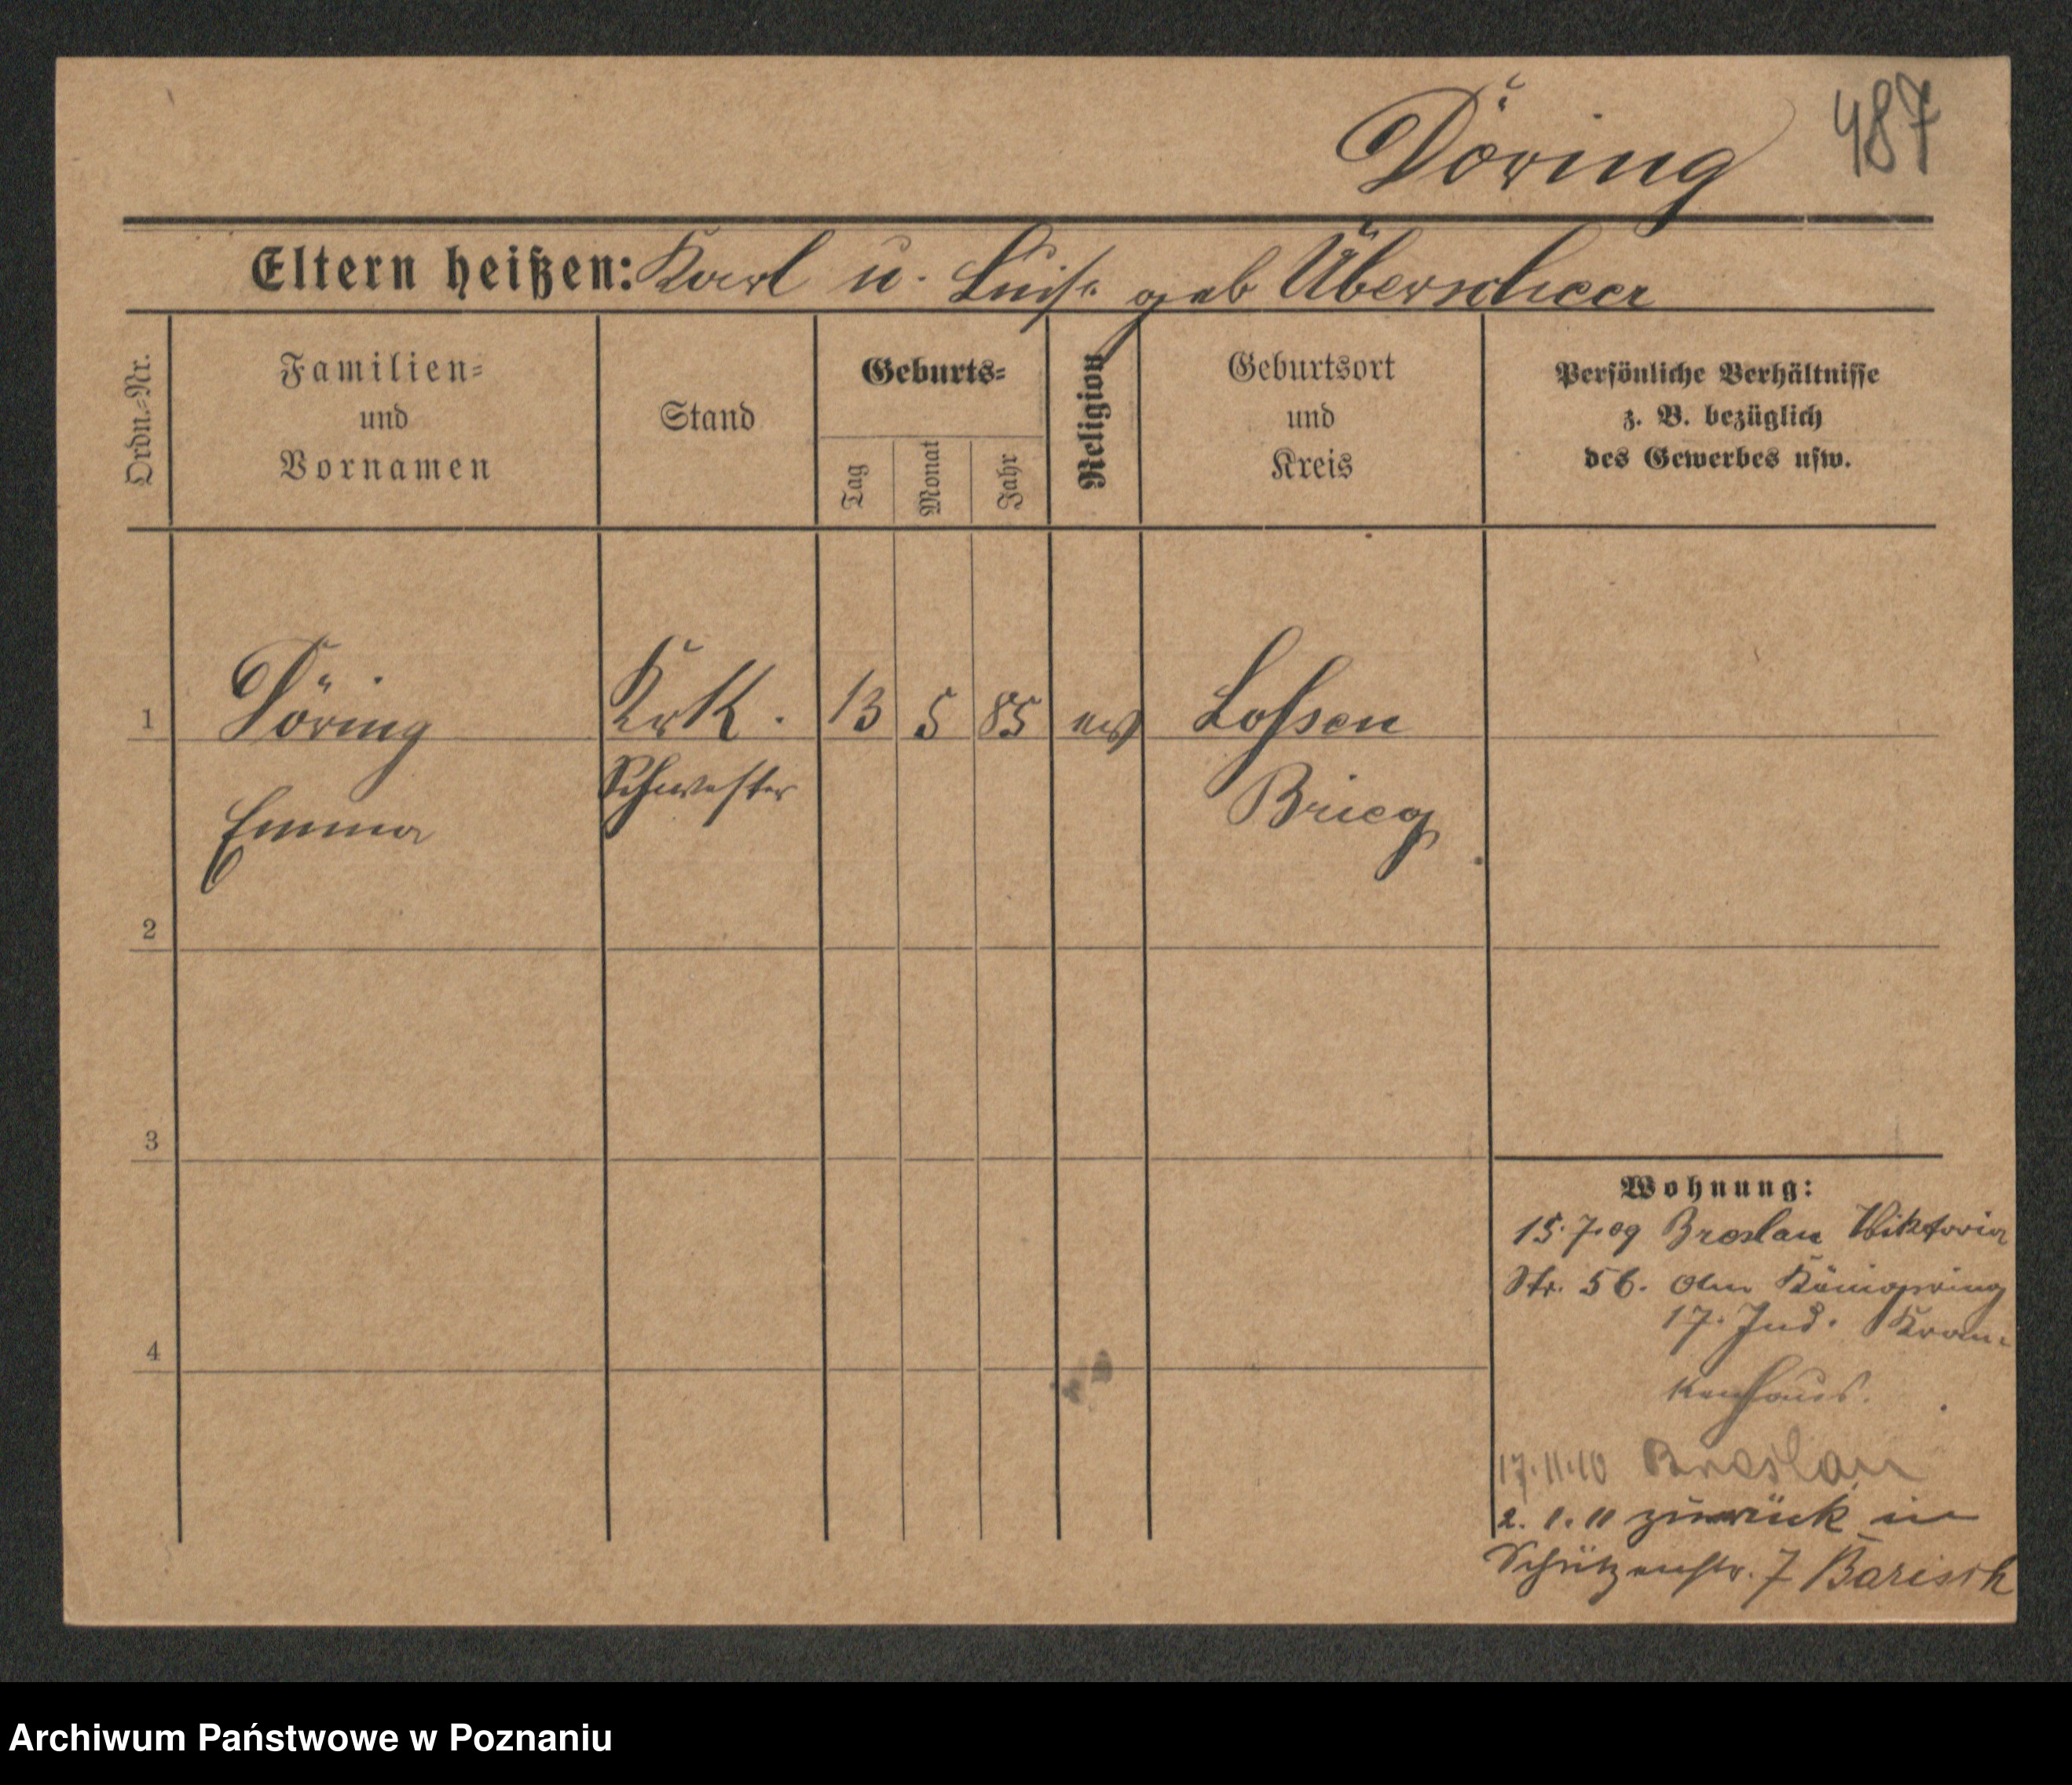 487
Döring
Eltern heißen: Karl u. Luise geb Überscheer
Ordn.-Nr.
Familien-
und
Vornamen
Stand
Geburts-
Tag
Monat
Jahr
Religion
Geburtsort
und
Kreis
Persönliche Verhältnisse
z. B. bezüglich
des Gewerbes usw.
1 Döring Krk. 13 5 85 ev Lossen
Schwester
Emma Brieg
2
3
4
Wohnung:
15.7.09 Breslau Viktoria
Str. 56. Am Königsring
17. Jüd. Kran-
kenhaus.
17.11.10 Breslau
2.1.11 zurück in
Schützenstr. 7 Barisch
Archiwum Państwowe w Poznaniu